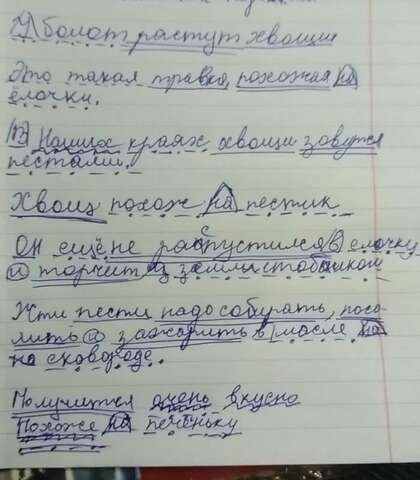 У болот растут хвощи
Это такая травка, похожая на
ёлочки.
В Наших краях хвощи зовутся
пестами.
Хвощ похож на пестик
Он ещё не распустился в елочку
и торчит из земли столбиком
Эти пести надо собирать, посо
лить и зажарить в масле на
на сковороде.
Получится очень вкусно
Похоже на печеньку